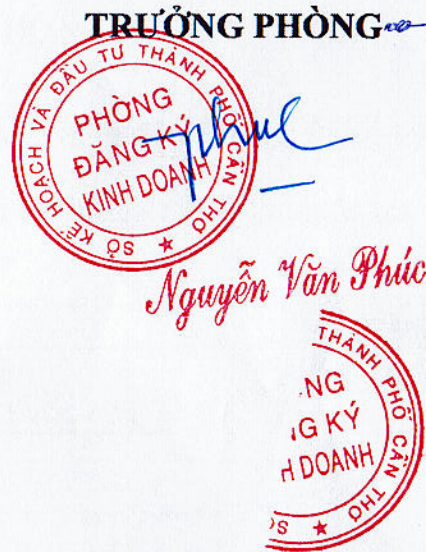 TRƯỞNG PHÒNG
SỞ KẾ HOẠCH VÀ ĐẦU TƯ THÀNH PHỐ CẦN THƠ
PHÒNG
ĐĂNG KÝ
KINH DOANH
Phuc
Nguyễn Văn Phúc
THÀNH PHỐ CẦN THƠ
NG
G KÝ
H DOANH